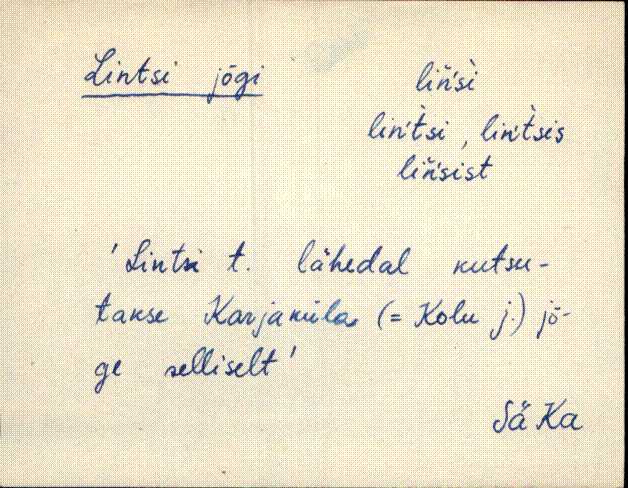 Lintsi jõgi liń̀si
lin't̀si, lin't̀sis
liń̀sist
'Lintsi t. lähedal kutsu-
takse Karjaküla (= Kolu j.) jõ-
ge selliselt'
Sä Ka